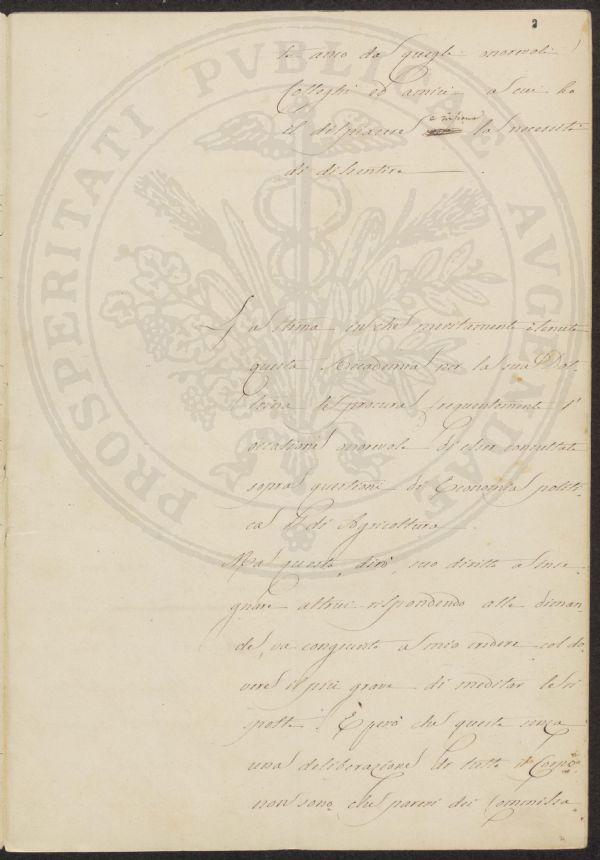 3
te amo da quegli onorevoli
Colleghi ed amici a cui ho
il dispiacere e insieme la necessità
di dissentire
La stima in che meritamente è tenuta
questa Accademia per la sua Dot-
trina le procura frequentemente l'
occasione onorevole di esser consultata
sopra questioni di Economia politi-
ca e di Agricoltura.
Ma questo, dirò, suo diritto a inse-
gnare altrui rispondendo alle diman-
de, va congiunto a mio credere col do-
vere il più grave di meditar le ri-
sposte. È però che queste senza
una deliberazione di tutto il Corpo
non sono che pareri dei Commissa-
PROSPERITATI PVBLICAE AVGENDAE